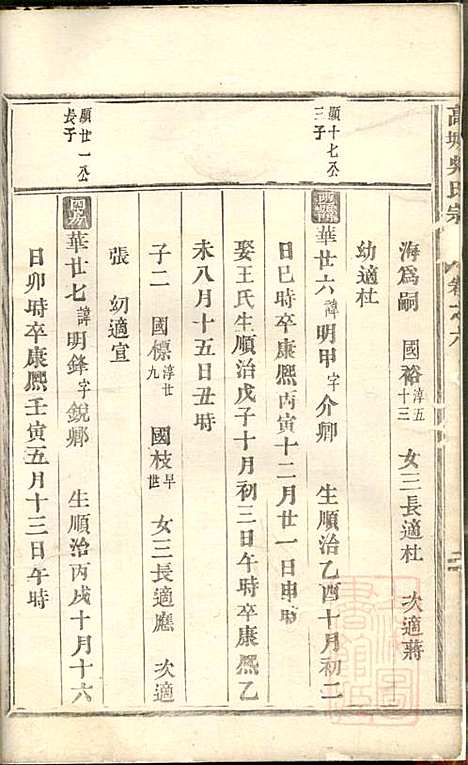 高城吳氏宗
卷之六
海爲嗣 國裕淳五十三 女三長適杜 次適蔣
幼適杜
顯十七公三子
華廿六諱明甲字介卿 生順治乙酉十月初二
日巳時卒康熙丙寅十二月廿一日申時
娶王氏生順治戊子十月初三日午時卒康熙乙
未八月十五日丑時
子二 國標淳廿九 國枝早世 女三長適應 次適
張 幼適宣
顯廿一公長子
華廿七諱明鋒字銳卿 生順治丙戌十月十六
日卯時卒康熙壬寅五月十三日午時